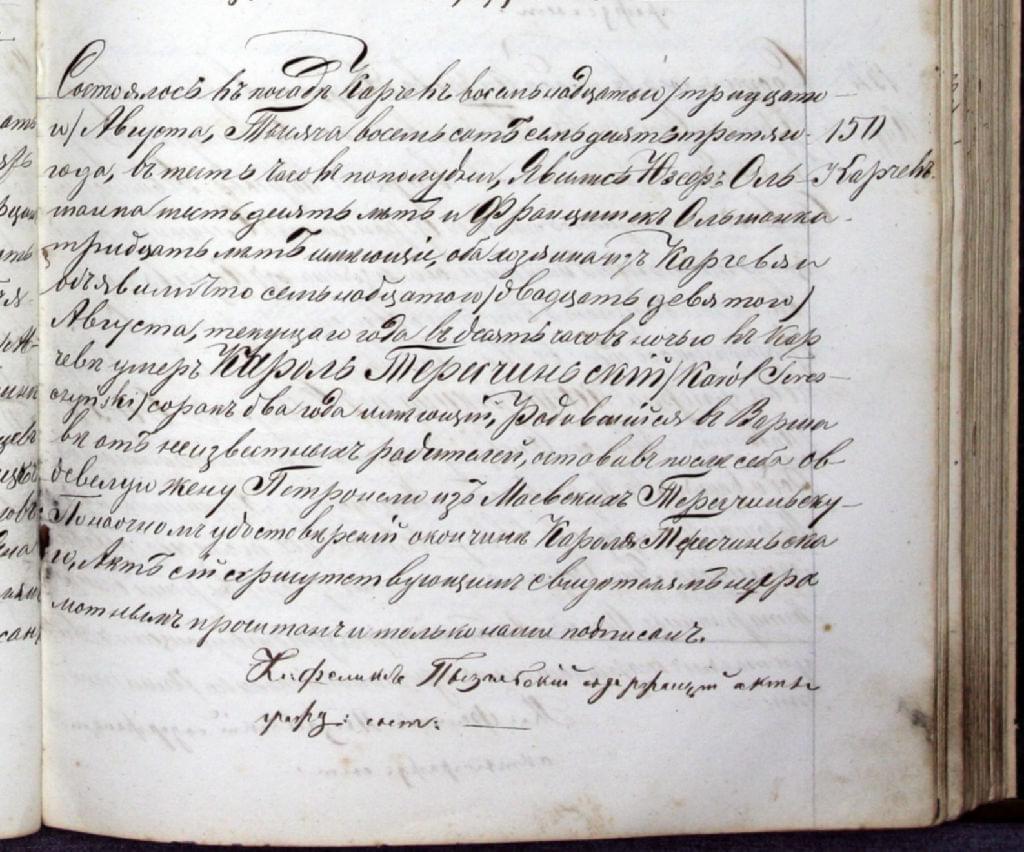 Состоялось въ посадѣ Карчевѣ восемьнадцатаго /тридцата-
го/ Августа, Тысяча восемьсотъ семьдесятъ третьяго
150
года, въ шесть часовъ пополудни, Явились Юзефъ Оль-
Карчевъ.
шанка шестьдесятъ лѣтъ и Францишекъ Ольшанка
тридцать лѣтъ имеющіе, оба хозяина изъ Карчевья и
объявили что семьнадцатого /двадцать девятого/
Августа, текущаго года въ десять часовъ ночью въ Кар
чевѣ умеръ Кароль Терещиньскій /Karól Teres-
czyński/ сорокъ два года имеющій, Родившійся въ Варша
вѣ отъ неизвестныхъ родителей, оставивъ после себя ов-
довелую жену Петронелю изъ Маевскихъ Терещиньску-
По наочномъ удостовѣреніи о кончинѣ Кароля Терещиньска
го, Актъ сей съ присутствующимъ свидѣтелямъ негра
мотнымъ прочитанъ и только нами подписанъ.
Кс: Феликсъ содержащій акты
гражд: сост: